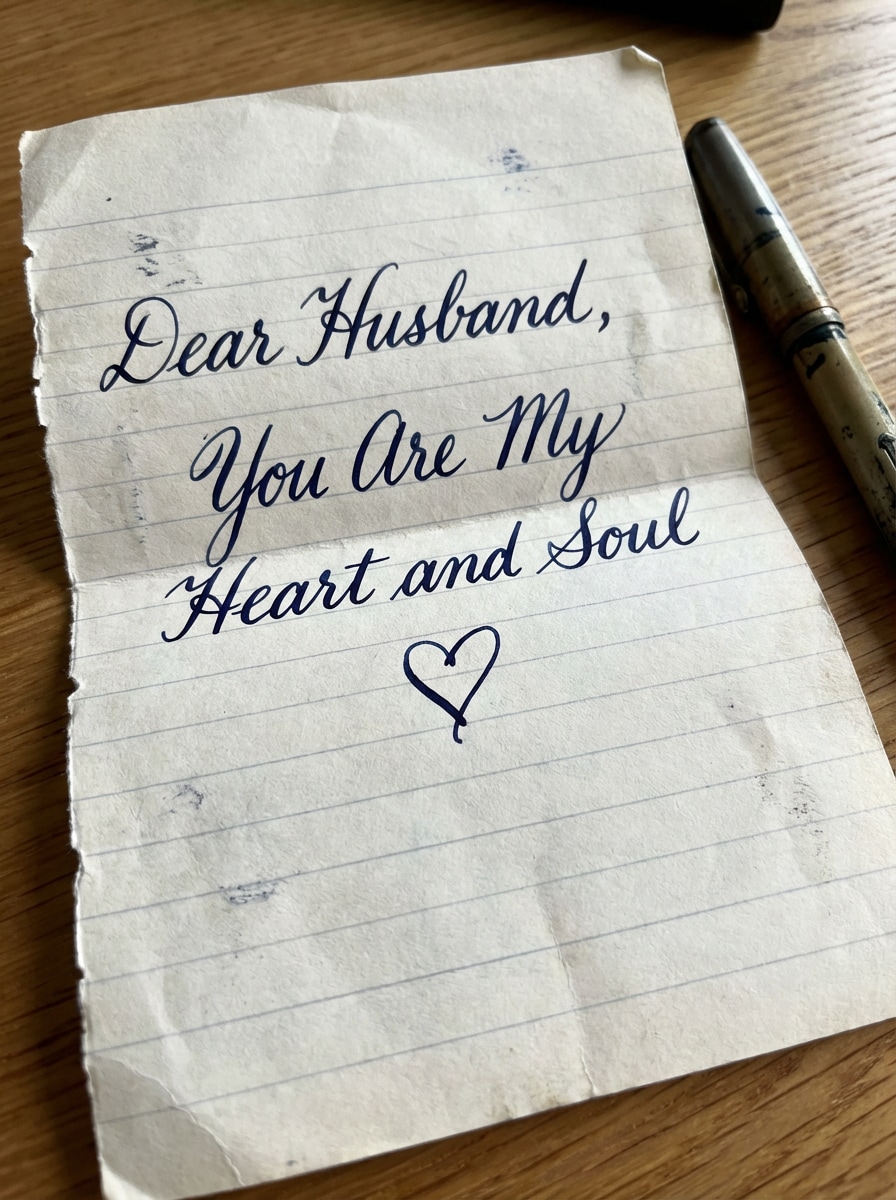 Dear Husband,
You Are My
Heart and Soul